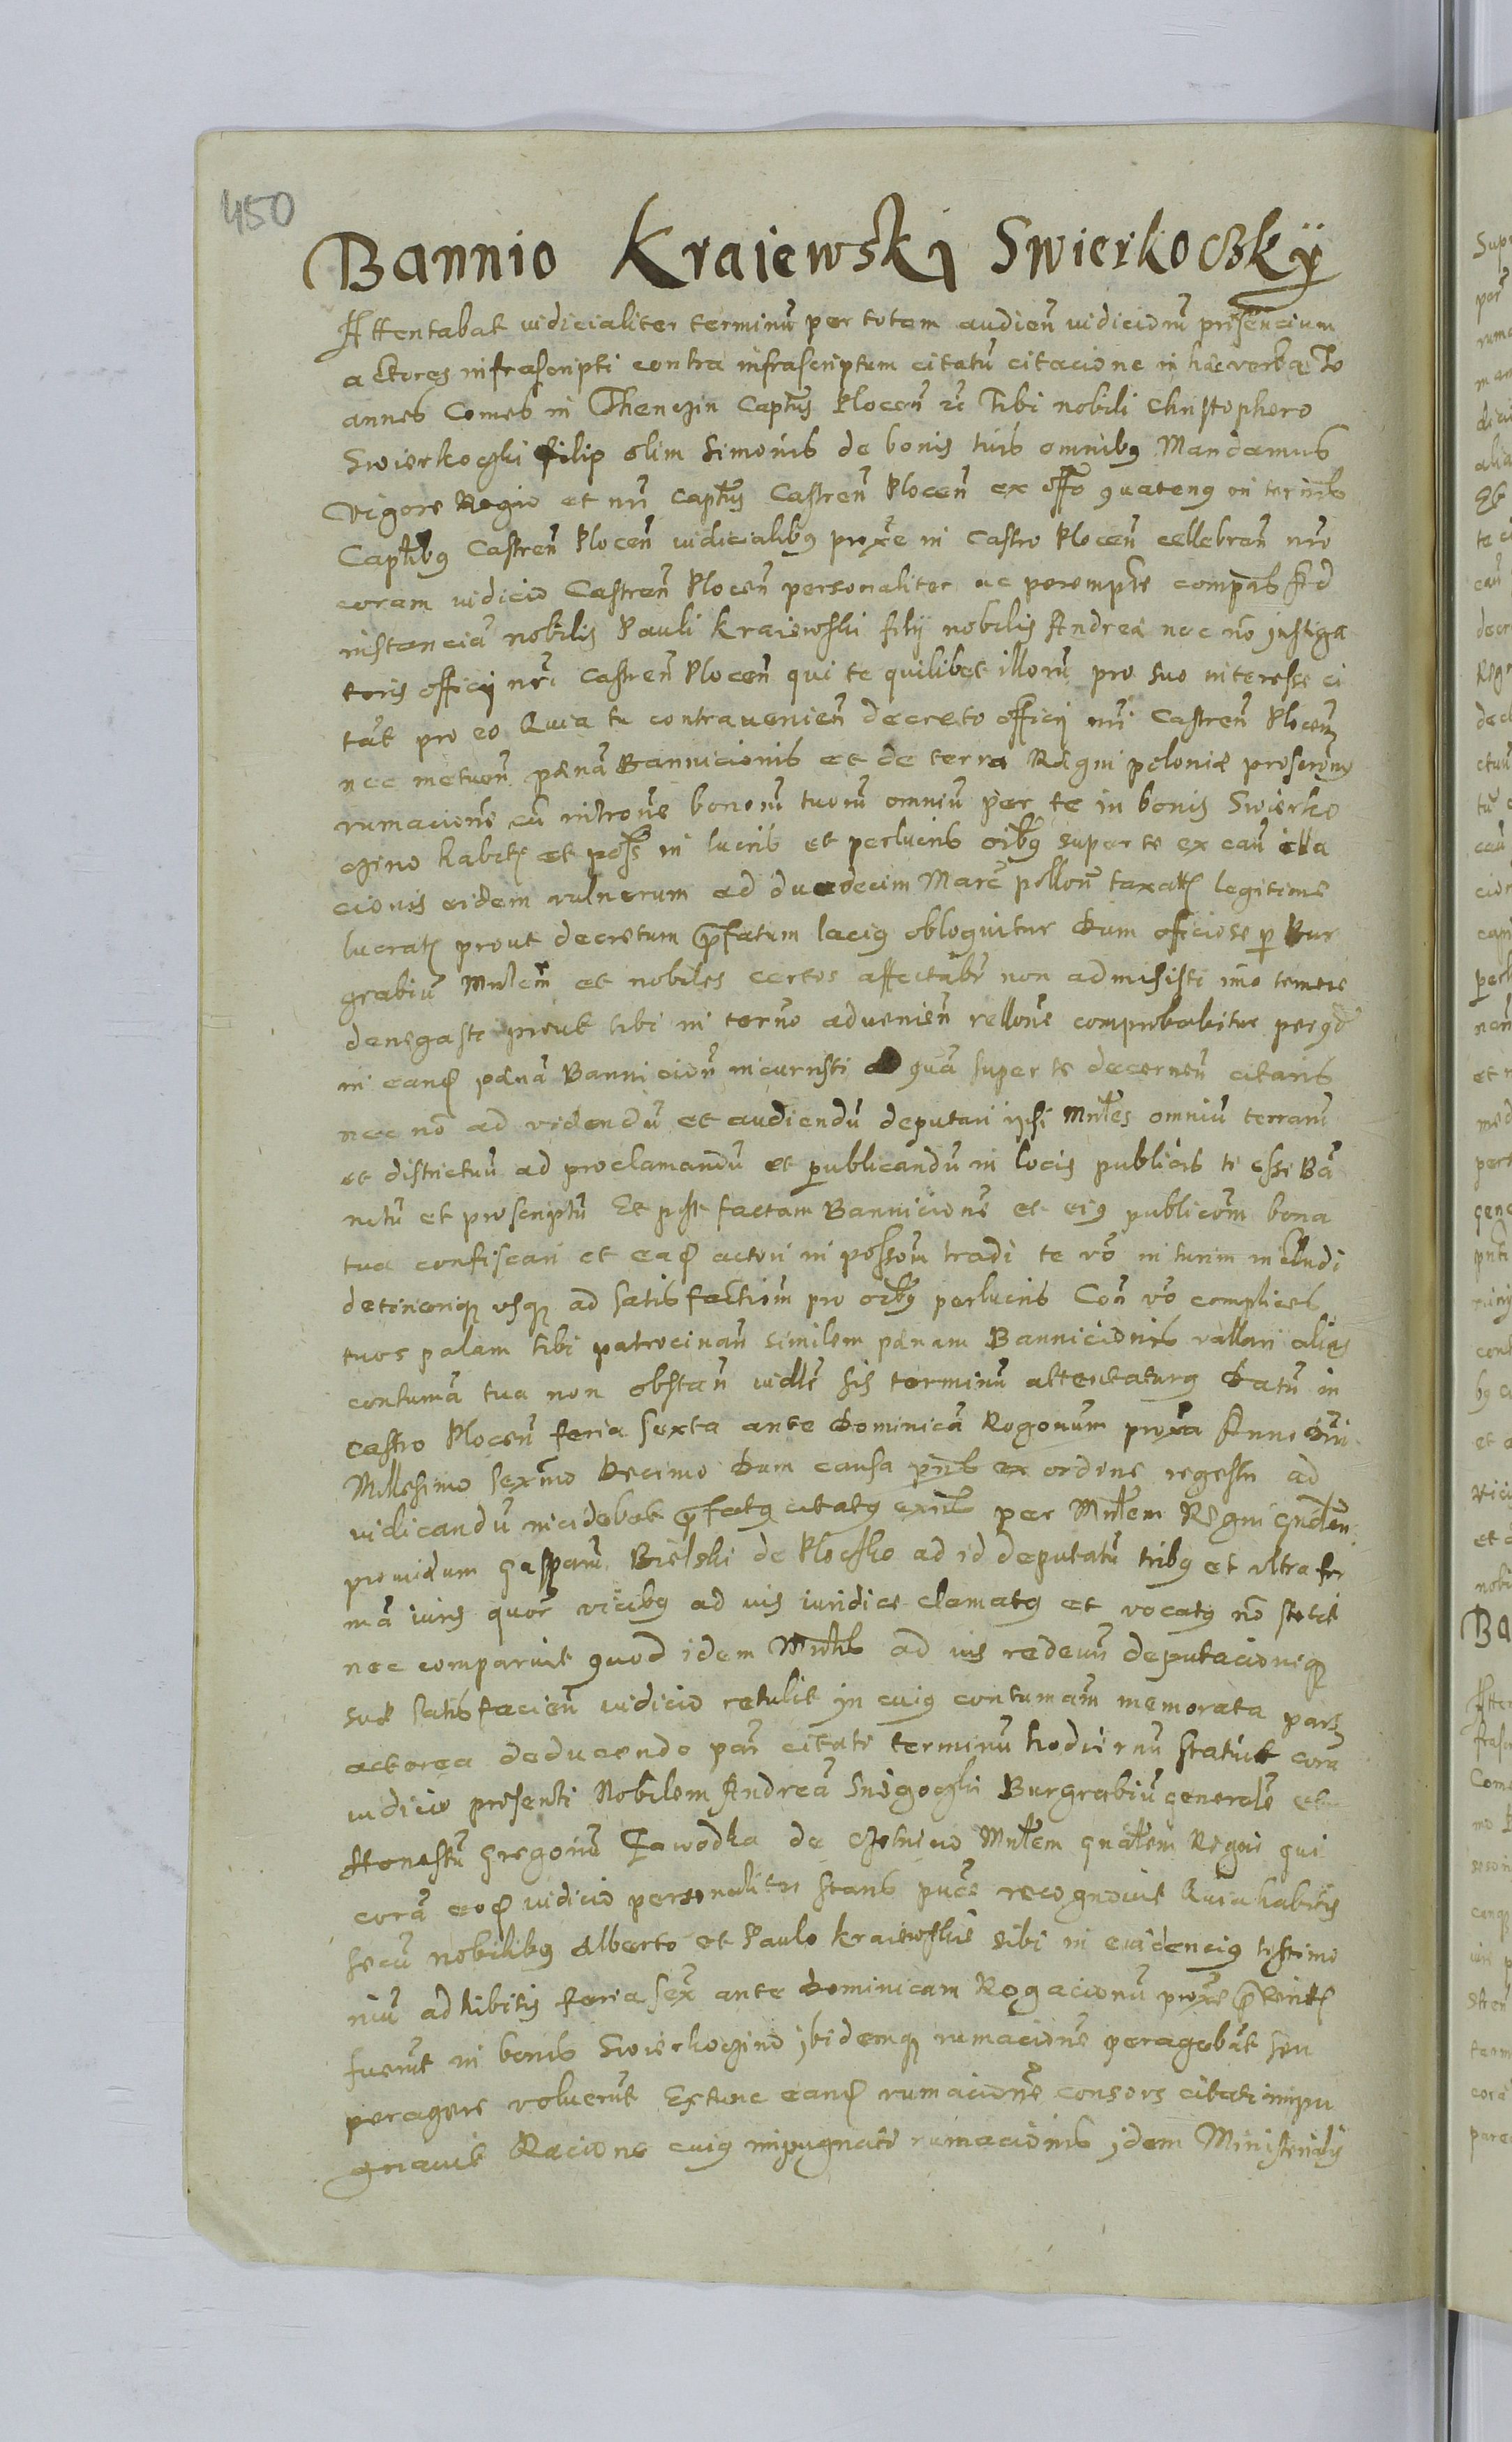 450
Bannio Kraiewskj Swierkoczkÿ
Attentabat iudicialiter terminũ per totam audien̄ iudiciorũ presencium
actores infrascripti contra infrascriptum citatũ citacione in hæc verba Jo
annes Comes in Thenczin Captus̃ Plocen̄ rc̃ Tibi nobili Christophero
Swierkoczki filio olim Simonis de bonis tuis omnibꝫ Mandamus
vigore Regio et nr̃i Captus̃ Castren̄ Plocen̄ ex offõ quatenꝫ in terminis
Captlibꝫ Castren̄ Plocen̄ iudicialibꝫ proxẽ in Castro Plocen̄ cellebran̄
coram iudicio Castren̄ Plocen̄ personaliter ac perempte compas Ad
instanciã nobilis Pauli Kraiewski filij nobilis Andreæ nec nõ instiga
toris officij nr̃i Castren̄ Plocen̄ qui te quilibet illorũ pro suo interesse ci
tãt pro eo Quia tu contravenien̄ decreto officij nr̃i Castren̄ Plocen̄
nec metuen̄ pænã Bannicionis et de terra Regni Poloniæ
rumacionẽ cũ introne bonorũ tuorũ omniũ per te in bonis Swierko
czino habitꝫ et poss̃ in lucris et perlucris oĩbꝫ super te ex cau illa
cionis eidem vulnerum ad duodecim Marc̃ pollon̄ taxatꝫ legitime
lucratꝫ prout decretum prefatum laciꝫ obloquitur Dum officiose per Bur
grabiũ Mnlem̃ et nobiles certos affectabr̃ non admisisti imo temere
denegasti prout tibi in termõ advenien̄ rellone comprobabitur per qd̃
in eandꝫ pænã Bannicion̄ incurristi quã super te decernen̄ citaris
nec nõ ad videndũ et audiendũ deputari ipsi Mnles̃ omniũ terrarũ
et districtuũ ad proclamandũ et publicandũ in locis publicis te esse Bã
nitũ et proscriptũ Et post factam Bannicionẽ et eiꝫ publicom̃ bona
tua confiscari et eadꝫ actori in possom̃ tradi te võ in turrim includi
detineriqꝫ usqꝫ ad satisfactiom̃ pro oĩbꝫ perlucris Con̄ võ complices
tuos palam tibi patrocinan̄ similem pænam Bannicionis vallari alias
contumã tua non obstan̄ iudlẽ sis terminũ attentaturꝫ Datũ in
Castro Plocen̄ feria sexta ante Dominicã Rogonum proxã Anno Dñi
Millesimo sexmõ Decimo Dum causa pñs ex ordine regestri ad
iudicandũ incidebat prefatꝫ citatꝫ exñs per Mnlem̃ Regni gnalem̃
providum Gasparũ Bielski de Plocsko ad id deputatũ tribꝫ et ultra for
mã iuris quor̃ vicibꝫ ad ius iuridice clamatꝫ et vocatꝫ nõ stetit
nec comparuit quod idem Mnlis ad ius redeun̄ deputacioniqꝫ
suæ satisfacien̄ iudicio retulit in cuiꝫ contumam̃ memorata pars
actorea deducendo par̃ citati terminũ hodiernũ statuit corã
iudicio presenti Nobilem Andreã Snigoczki Burgrabiũ generalẽ et
Honestũ Gregoriũ Mnlem̃ gnalem̃ Regni qui
corã eodꝫ iudicio personaliter stans puce recognovit Quia habitis
secũ nobilibꝫ Alberto et Paulo Kraiewskie sibi in evidenciꝫ testimo
niũ adhibitis feria sex̃ ante Dominicam Rogacionũ proxẽ preteritꝫ
fuerũt in bonis Swierkoczino ibidemqꝫ rumacionẽ peragebãt seu
peragere voluerũt Extunc eandꝫ rumacionẽ consors citati impu
gnavit Racione cuiꝫ impugnatẽ rumacionis idem Ministerialis